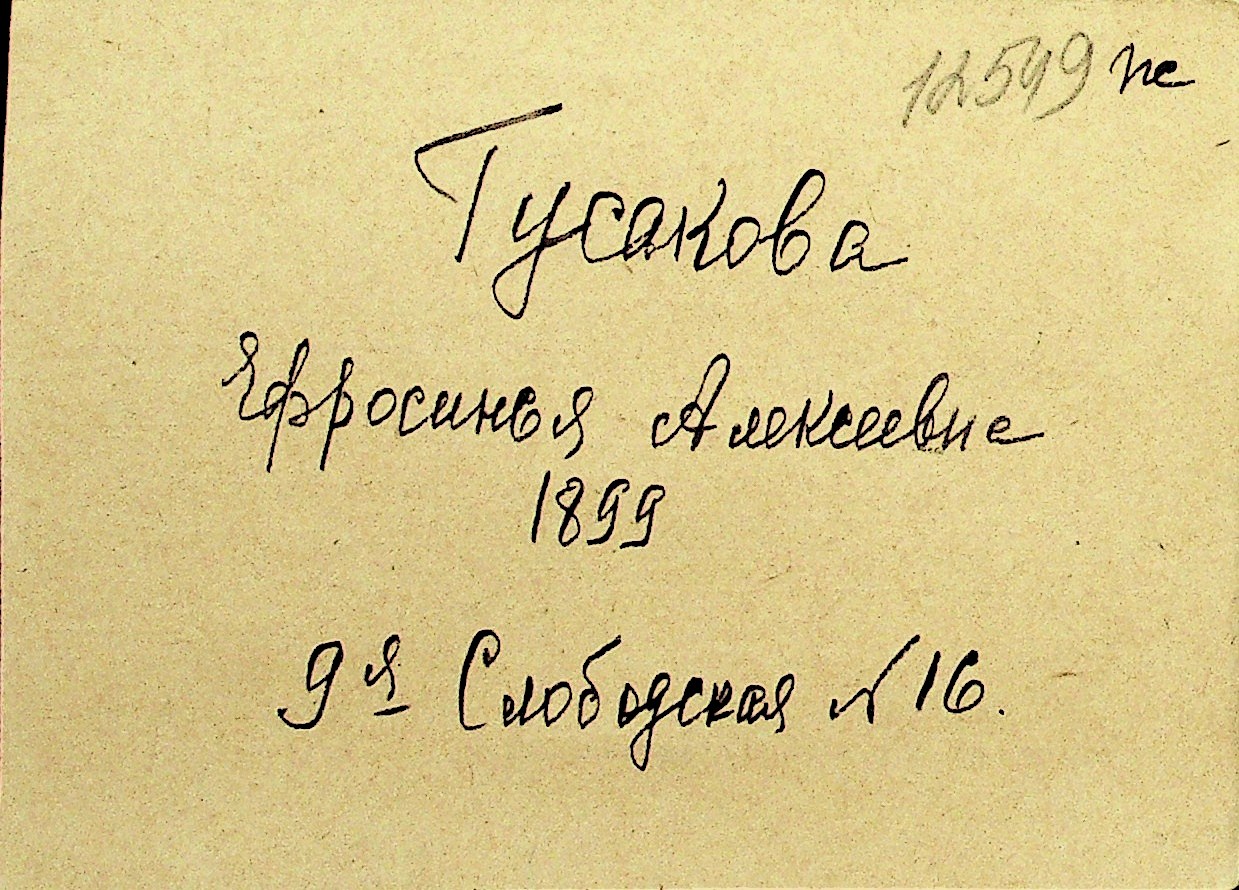 12549 не
Гусакова
Ефросинья Алексеевна
1899
9я Слободская № 16.